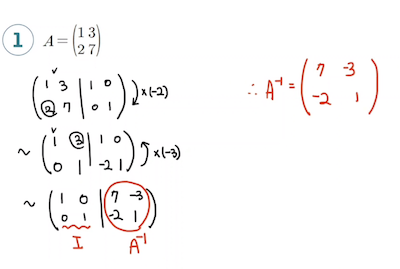 1 A = (1 3
2 7)
(1 3 | 1 0
2 7 | 0 1) ×(-2)
~ (1 3 | 1 0
0 1 | -2 1) ×(-3)
~ (1 0 | 7 -3
0 1 | -2 1)
I A⁻¹
∴ A⁻¹ = (7 -3
-2 1)